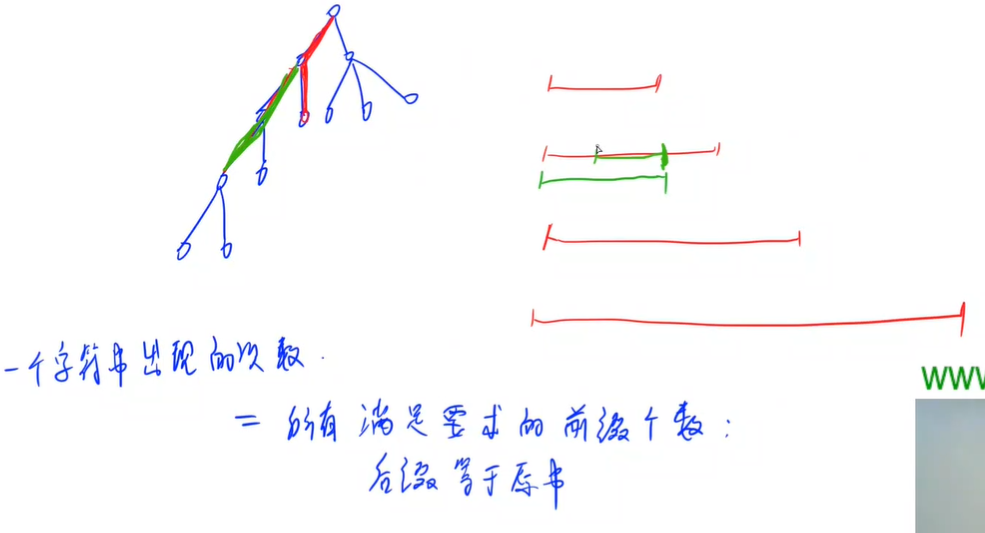 一个字符串出现的次数.
= 所有满足要求的前缀个数:
后缀等于原串
WWW